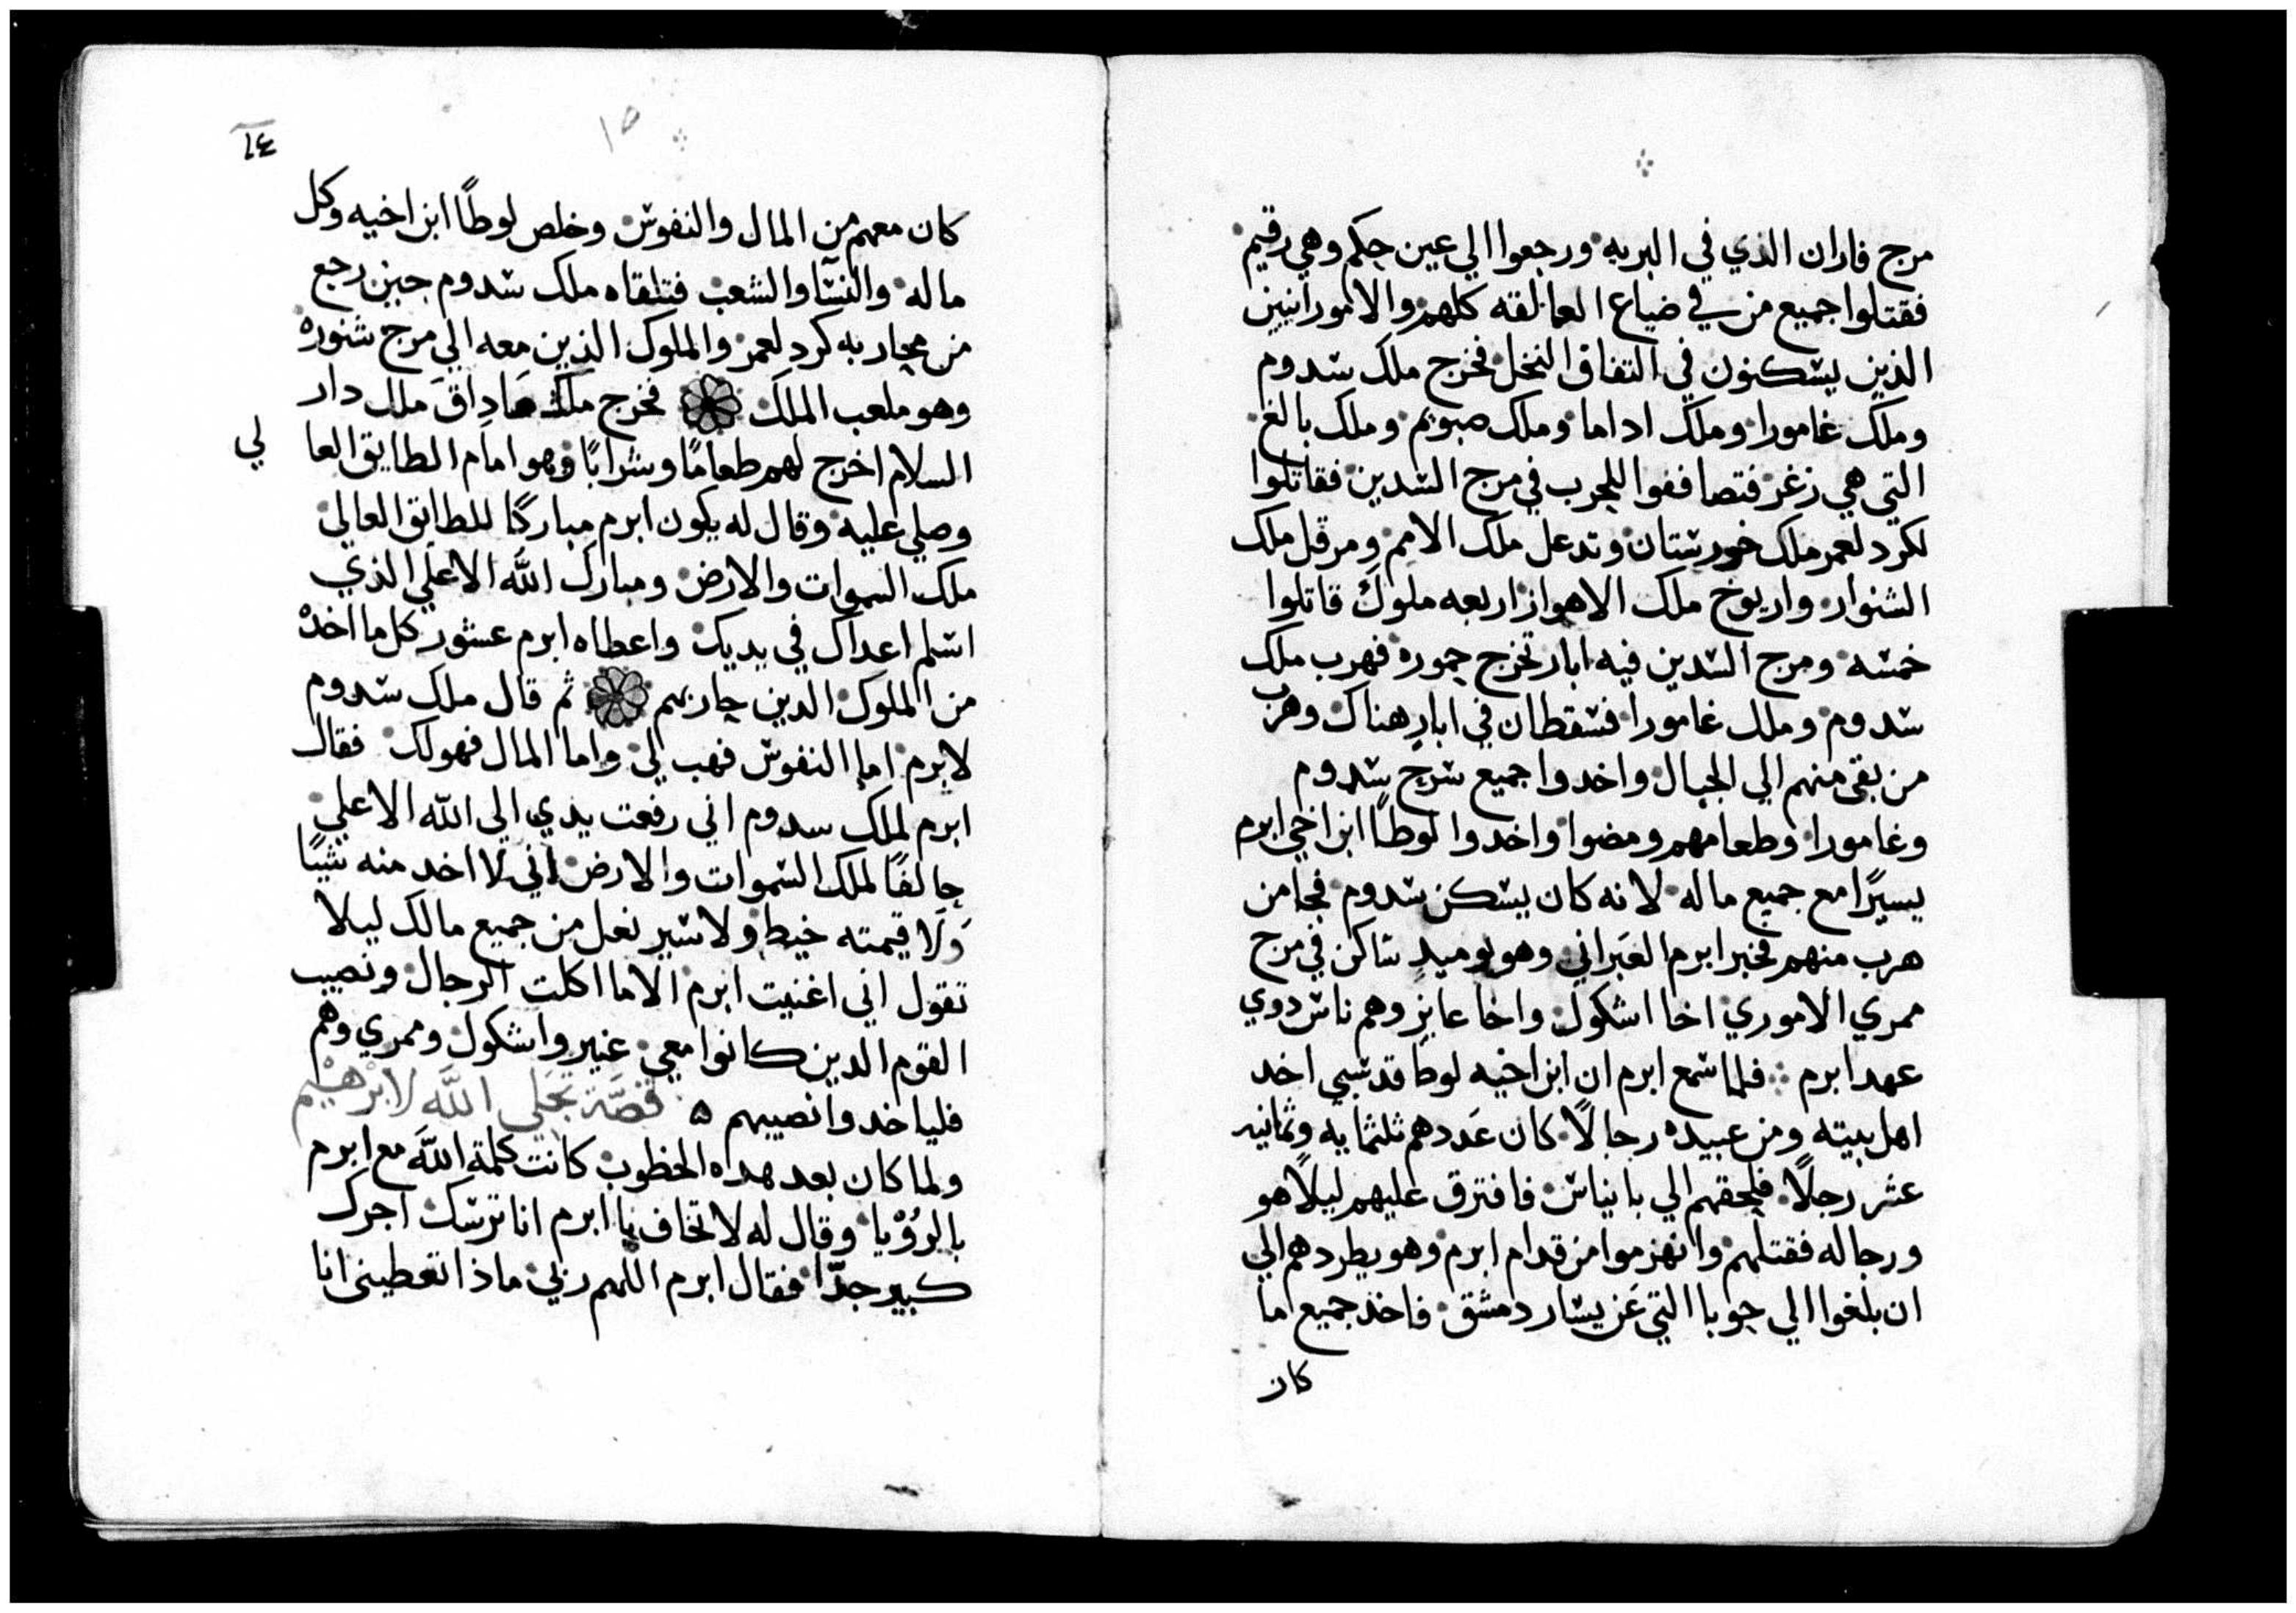 مرج فاران الذي في البريه ورجعوا الي عين حكم وهي رقيم
فقتلوا جميع من في ضياع العمالقه كلهم والامورانيين
الذين يسكنون في التفاف النخل فخرج ملك سدوم
وملك غامورا وملك اداما وملك صبوئم وملك بالغ
التي هي زغر فتصاففوا للحرب في مرج السدين فقاتلوا
لكرد لعمر ملك خورستان وتدعل ملك الامم ومرقل ملك
الشنوار واريوخ ملك الاهواز اربعه ملوك قاتلوا
خمسه ومرج السدين فيه ابار تخرج حموره فهرب ملك
سدوم وملك غامورا فسقطان في ابار هناك وهرب
من بقى منهم الي الجبال واخدوا جميع سرح سدوم
وغامورا وطعامهم ومضوا واخدوا لوطًا ابن اخي ابرم
يسيرًا مع جميع ماله لانه كان يسكن سدوم فجا من
هرب منهم فخبر ابرم العبراني وهو يوميدٍ ساكن في مرج
ممري الاموري اخا اشكول واخا عانِر وهم ناس دوي
عهد ابرم فلما سمع ابرم ان ابن اخيه لوطا قد سبي اخد
اهل بيته ومن عبيده رجالًا كان عَددهم ثلثمايه وثمانيه
عشر رجلًا فلحقهم الي بانياس فافترق عليهم ليلًا هو
ورجاله فقتلهم وانهزموا من قدام ابرم وهو يطردهم الي
ان بلغوا الي حوبا التي عَن يسار دمشق فاخد جميع ما
كان
١٥
١٤
كان معهم من المال والنفوس وخلص لوطًا ابن اخيه وكل
ماله والنسآ والشعب فتلقاه ملك سدوم حين رجع
من محاربه كرد لعمر والملوك الذين معه الي مرج شنوره
وهو ملعب الملك فخرج ملك صَادِاقَ ملك دار
السلام اخرج لهم طعامًا وشرابًا وهو امام الطايق العا لي
وصلي عليه وقال له يكون ابرم مباركًا للطايق العالي
ملك السموات والارض ومبارك الله الاعلي الذي
اسلم اعداك في يديك واعطاه ابرم عشور كل ما اخد
من الملوك الدين حاربهم ثم قال ملك سدوم
لابرم اما النفوس فهب لي واما المال فهو لك فقال
ابرم لملك سدوم اني رفعت يدي الي الله الاعلي
حالفًا لملك السموات والارض اني لا اخد منه شيًا
وَلَا قيمته خيط ولا سير نعل من جميع مالك ليلا
تقول اني اغنيت ابرم الا ما اكلت الرجال ونصيب
القوم الدين كانوا معي عنير واشكول وممري وهم
فلياخدوا نصيبهم ه قصَّة تجَلي اللَّه لابرْهيْم
ولما كان بعد هده الخطوب كانت كلمة اللَّه مع ابرم
بالرُؤْيا وقال له لا تخاف يا ابرم انا ترسك اجرك
كبير جدًّا فقال ابرم اللهم ربي ماذا تعطيني انا